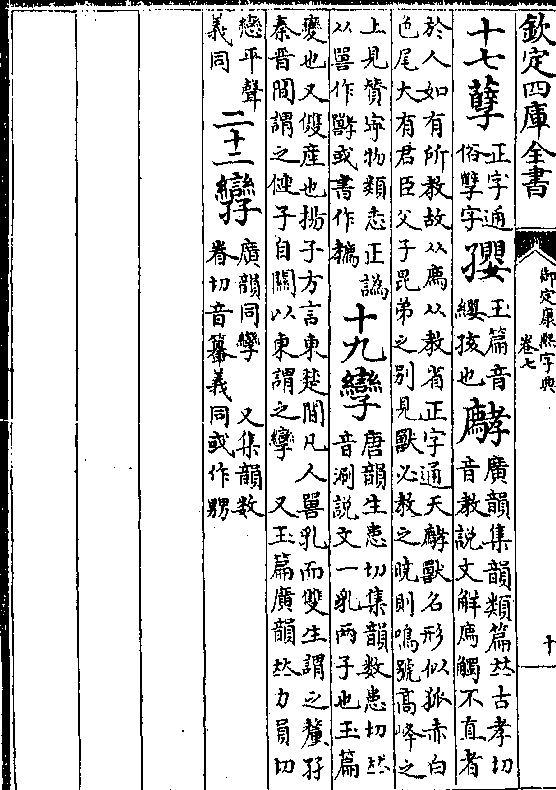 欽定四庫全書
御定康熙字典
卷七
十
十七孽
正字通
俗孼字
孾
玉篇音
纓孩也
𢉖
廣韻集韻類篇𠀤古孝切
音教說文解廌觸不直者
於人如有所教故从廌从教省正字通天𢉖獸名形似狐赤白
色尾大有君臣父子昆弟之別見獸必教之曉則鳴號高峰之
上見贊寧物類志正譌
从嘼作或書作
十九孿
唐韻生患切集韻數患切𠀤
音涮說文一乳兩子也玉篇
變也又㕠產也揚子方言東楚間凡人嘼乳而雙生謂之釐孖
秦晉間謂之僆子自關以東謂之孿 又玉篇廣韻𠀤力員切
戀平聲
義同
二十二𡤻
廣韻同孿 又集韻數
眷切音䉵義同或作㝈